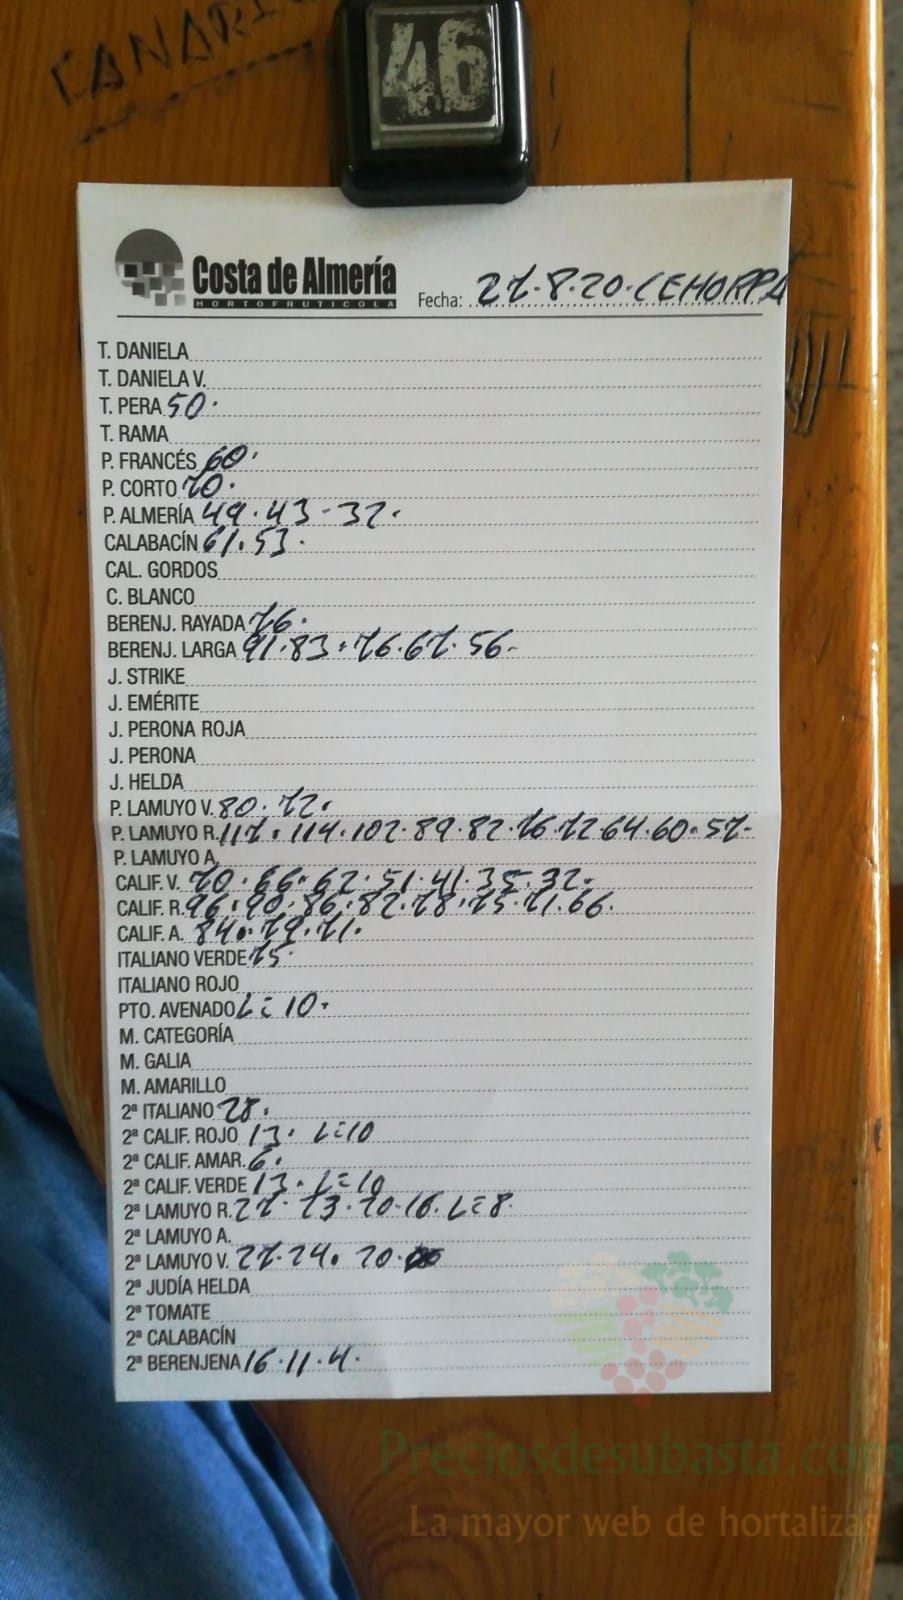 CANARI
46
Costa de Almería
HORTOFRUTICOLA
Fecha: 27.8.20. CEHORPA
T. DANIELA
T. DANIELA V.
T. PERA 50.
T. RAMA
P. FRANCÉS 60.
P. CORTO 70.
P. ALMERÍA 49.43-32.
CALABACÍN 61.53.
CAL. GORDOS
C. BLANCO
BERENJ. RAYADA 76.
BERENJ. LARGA 91.83.76.67.56-
J. STRIKE
J. EMÉRITE
J. PERONA ROJA
J. PERONA
J. HELDA
P. LAMUYO V. 80.72.
P. LAMUYO R. 117.114.102.89.82.76.72.64.60.57-
P. LAMUYO A.
CALIF. V. 70.66.62.51.41.35.32.
CALIF. R. 96.90.86.82.78.75.71.66.
CALIF. A. 84.79.71.
ITALIANO VERDE 75.
ITALIANO ROJO
PTO. AVENADO L=10.
M. CATEGORÍA
M. GALIA
M. AMARILLO
2ª ITALIANO 28.
2ª CALIF. ROJO 13. L=10
2ª CALIF. AMAR. 6.
2ª CALIF. VERDE 13. L=10
2ª LAMUYO R. 27.23.20.16. L=8.
2ª LAMUYO A.
2ª LAMUYO V. 27.24. 20.
2ª JUDÍA HELDA
2ª TOMATE
2ª CALABACÍN
2ª BERENJENA 16.11.4.
Preciosdesubasta.com
La mayor web de hortalizas